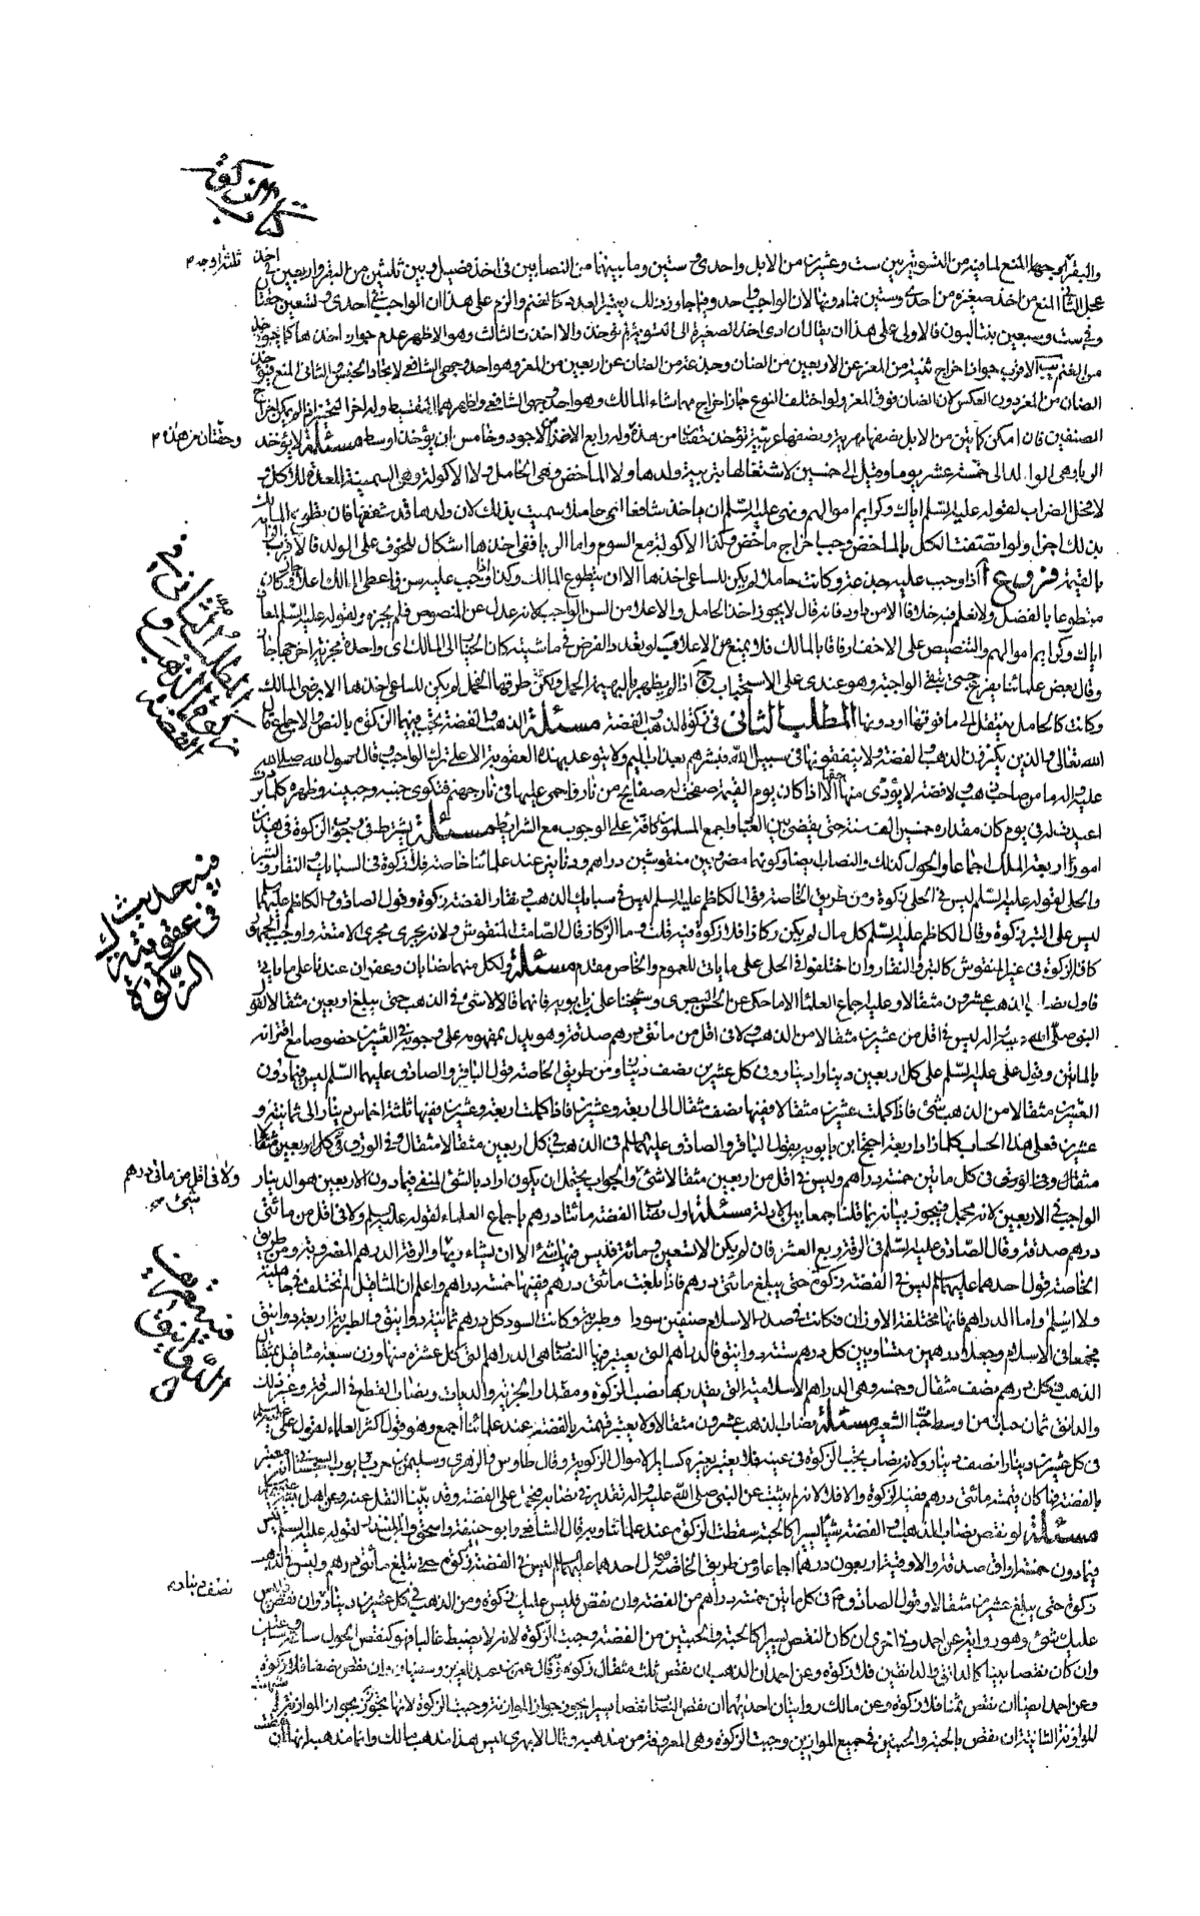 كتاب الزكوة
ثلثة اوجه
والبقر اوجهها المنع لما فيه من التسوية بين ست وعشرين من الابل واحدى وستين وما بينهما من النصابين في اخذ فصيل وبين ثلثين من البقر واربعين في اخذ
عجل الثاني المنع من اخذ صغيرة من احدى وستين فما دونها لان الواجب واحد وفيما جاوز ذلك يعتبر العدد كالغنم والزم على هذا ان الواجب في احدى وتسعين حقتا
وفي ست وسبعين بنتا لبون فالاولى على هذا ان يقال ان ادى اخذ الصغيرة الى التسوية لم توخذ والا اخذت الثالث وهو الاظهر عدم جواز اخذها كما يوخذ
من الغنم الاقرب جواز اخراج ثنية من المعز عن الاربعين من الضان وجذعة من الضان عن اربعين من المعز وهو احد وجهي الشافعي لاتحاد الجنس والثاني المنع فيوخذ
الضان من المعز دون العكس كان الضان فوق المعز ولو اختلف النوع جاز اخراج مهما شاء المالك وهو احد وجهي الشافعي واظهرهما التقسيط وله اخر التخيير اذا لم يمكن اخراج
الصنفين فان امكن كمأتين من الابل نصفها مهرية ونصفها عربية تؤخذ حقتان من هذه وله رابع الاخذ من الاجود وخامس ان يؤخذ اوسط مسئلة لا يؤخذ
وحقتان من هذه
الربا وهي الوالد الى خمسة عشر يوما وقيل الى خمسين لاشتغالها بتربية ولدها ولا الماخض وهي الحامل ولا الاكولة وهي السمينة المعدة للاكل و
لا فحل الضراب لقوله عليه السلم اياك وكرايم اموالهم ونهى عليه السلم ان ياخذ شافعا اي حاملا سميت بذلك لان ولدها قد شفعها فان تطوع المالك
بذلك اجزا ولو اتصفت الكل بالماخض وجب اخراج ماخض وكذا الاكولة مع السوم واما الربا ففي اخذها اشكال للخوف على الولد فالاقرب الزامه
بالقيمة فروع آ اذا وجب عليه جذعة وكانت حاملا لم يكن للساعي اخذها الا ان يتطوع المالك وكذا اذا وجب عليه سن فاعطى المالك اعلا جاز وكان
متطوعا بالفضل ولا نعلم فيه خلافا الا من داود فانه قال لا يجوز اخذ الحامل والاعلا من السن الواجب لانه عدل عن المنصوص فلم يجزه ولقوله عليه السلم لمعاذ
اياك وكرايم اموالهم والتنصيص على الاخف ارفاقا بالمالك فلا يمنع من الاعلا ب لو تعدد الفرض في ماشيته كان الخيار الى المالك اي واحدة مجزية اخرجها جاز
وقال بعض علمائنا يقرع حتى تبقى الواجبة وهو عندي على الاستحباب ج اذا لم يظهر بالبهيمة الحمل ولكن طرقها الفحل لم يكن للساعي اخذها الا برضى المالك
وكانت كالحامل ينتقل الى ما فوقها او دونها المطلب الثاني في زكوة الذهب والفضة مسئلة الذهب والفضة تجب فيهما الزكوة بالنص والاجماع قال
المطلب الثاني في زكوة الذهب والفضة
الله تعالى والذين يكنزون الذهب والفضة ولا ينفقونها في سبيل الله فبشرهم بعذاب اليم ولا يتوعد بهذه العقوبة الا على ترك الواجب وقال رسول الله صلى الله
عليه واله ما من صاحب ذهب ولا فضة لا يؤدى منها حقها الا اذا كان يوم القيمة صفحت له صفايح من نار فاحمى عليها في نار جهنم فتكوى جنبه وجبينه وظهره كلما بردت
اعيدت له في يوم كان مقداره خمسين الف سنة حتى يقضى بين العباد واجمع المسلمون كافة على الوجوب مع الشرايط مسئلة يشترط في وجوب الزكوة في هذين
فيه حديث في عقوبة تارك الزكوة
امور اربعة الملك اجماعا والحول كذلك والنصاب ايضا وكونها مضروبين منقوشين دراهم ودنانير عند علمائنا خاصة فلا زكوة في السبايك والنقار والتبر
والحلى لقوله عليه السلم ليس في الحلى زكوة ومن طريق الخاصة قول الكاظم عليه السلم ليس في سبايك الذهب ونقار الفضة زكوة وقول الصادق والكاظم عليهما السلم
ليس على التبر زكوة وقال الكاظم عليه السلم كل مال لم يكن ركازا فلا زكوة فيه قلت وما الركاز قال الصامت المنقوش ولانه يجرى مجرى الامتعة واوجب الجمهور
كافة الزكوة في غير المنقوش كالتبر والنقار وان اختلفوا في الحلى على ما ياتي للعموم والخاص مقدم مسئلة ولكل منهما نصابان وعفوان عندنا على ما ياتي
فاول نصاب الذهب عشرون مثقالا وعليه اجماع العلماء الا ما حكى عن الحسن البصري وشيخنا علي بن بابويه فانهما قالا لا شئ في الذهب حتى يبلغ اربعين مثقالا لقول
النبي صلى الله عليه واله ليس في اقل من عشرين مثقالا من الذهب ولا في اقل من مأتى درهم صدقة وهو يدل بمفهومه على وجوبها في العشرين خصوصا مع اقترانه
بالمأتين وقول علي عليه السلم على كل اربعين دينارا دينار وفي كل عشرين نصف دينار ومن طريق الخاصة قول الباقر والصادق عليهما السلم ليس فيما دون
العشرين مثقالا من الذهب شئ فاذا كملت عشرين مثقالا ففيها نصف مثقال الى اربعة وعشرين فاذا كملت اربعة وعشرين ففيها ثلثة اخماس دينار الى ثمانية و
عشرين فعلى هذا الحساب كلما زاد اربعة احتج ابن بابويه بقول الباقر والصادق عليهما السلم في الذهب في كل اربعين مثقالا مثقال وفي الورق في كل اربعين مثقالا
مثقال وفي الورق في كل مأتين خمسة دراهم وليس في اقل من اربعين مثقالا شئ والجواب يحتمل ان يكون اراد بالشئ المنفي فيما دون الاربعين هو الدينار
ولا في اقل من مأتي درهم شئ
الواجب في الاربعين لانه مجمل فيجوز بيانه بما قلنا جمعا بين الادلة مسئلة اول نصاب الفضة مائتا درهم باجماع العلماء لقوله عليه السلم ولا في اقل من مائتي
درهم صدقة وقال الصادق عليه السلم في الرقة ربع العشر فان لم يكن الا تسعين ومائة فليس فيها شئ الا ان يشاء ربها والرقة الدرهم المضروبة ومن طريق
الخاصة قول احدهما عليهما السلم ليس في الفضة زكوة حتى يبلغ مائتي درهم فاذا بلغت مائتي درهم ففيها خمسة دراهم واعلم ان المثاقيل لم تختلف في جاهلية
فيه تعريف الدوانيق
ولا اسلم واما الدراهم فانها مختلفة الاوزان فكانت في صدر الاسلام صنفين سودا وطبرية وكانت السود كل درهم ثمانية دوانيق والطبرية اربعة دوانيق
فجمعا في الاسلام وجعلا درهمين متساويين كل درهم ستة دوانيق فالدراهم التي يعتبر فيها النصاب هي الدراهم التي كل عشرة منها وزن سبعة مثاقيل بمثقال
الذهب وكل درهم نصف مثقال وخمسه وهي الدراهم الاسلامية التي يقدر بها نصب الزكوة ومقدار الجزية والديات ونصاب القطع في السرقة وغير ذلك
والدانق ثمان حبات من اوسط حبات الشعير مسئلة نصاب الذهب عشرون مثقالا ولا يعتبر قيمته بالفضة عند علمائنا اجمع وهو قول اكثر العلماء لقول علي عليه السلم
في كل عشرين دينارا نصف دينار ولانه نصاب تجب الزكوة في عينه فلا يعتبر بغيره كساير الاموال الزكوية وقال طاوس والزهري وسليمن بن حرب وايوب السجستاني انه معتبر
بالفضة فما كان قيمته مائتي درهم ففيه الزكوة والا فلا لانه لم يثبت عن النبي صلى الله عليه واله تقدير في نصابه فيحمل على الفضة وقد بينا النقل عنه وعن اهل بيته عليهم السلم
مسئلة لو نقص نصاب الذهب والفضة شيئا يسيرا كالحبة سقطت الزكوة عند علمائنا وبه قال الشافعي وابو حنيفة واسحق وابن المنذر لقوله عليه السلم ليس
فيما دون خمسة اواق صدقة والاوقية اربعون درهما اجماعا ومن طريق الخاصة قول احدهما عليهما السلم ليس في الفضة زكوة حتى تبلغ مأتي درهم وليس في الذهب
زكوة حتى يبلغ عشرين مثقالا وقول الصادق في كل مأتين خمسة دراهم من الفضة وان نقص فليس عليك زكوة ومن الذهب في كل عشرين دينارا وان نقص فليس
نصف دينار
عليك شئ وهو رواية عن احمد وفي اخرى ان كان النقص يسيرا كالحبة والحبتين من الفضة وجبت الزكوة لانه لا ينضبط غالبا فهو كنقص الحول ساعة وساعتين
وان كان نقصا بينا كالدانق والدانقين فلا زكوة وعن احمد ان الذهب ان نقص ثلث مثقال زكوة وبه قال عمر بن عبد العزيز وسفيان وان نقص نصفا فلا زكوة
وعن احمد ايضا ان نقص ثمنا فلا زكوة وعن مالك روايتان احديهما ان نقص النصاب نقصا يسيرا يجوز جواز الموازنة وجبت الزكوة لانها تجوز بجواز الموازنة
للموازنة الثانية ان نقص بالحبة والحبتين في جميع الموازين وجبت الزكوة وهي المعروفة من مذهبه وقال الابهري ليس هذا مذهب مالك وانما مذهبه انها ان